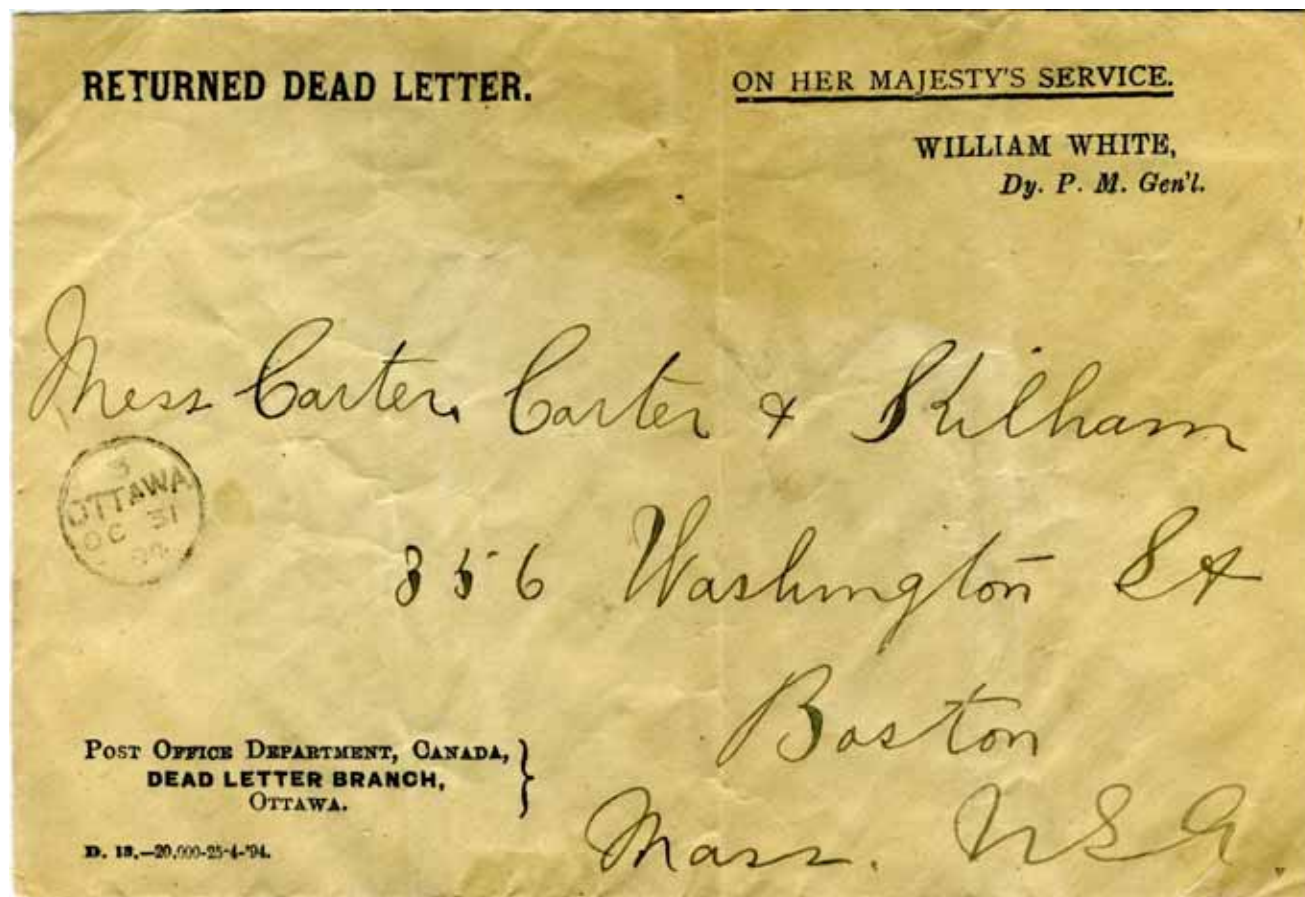 RETURNED DEAD LETTER.
ON HER MAJESTY'S SERVICE.
WILLIAM WHITE,
Dy. P. M. Gen'l.
Mess Carter, Carter & Kilham
3
OTTAWA
OC 31
94
356 Washington St
Boston
Mass. USA.
POST OFFICE DEPARTMENT, CANADA,
DEAD LETTER BRANCH,
OTTAWA.
D. 13.—20,000-25-4-'94.